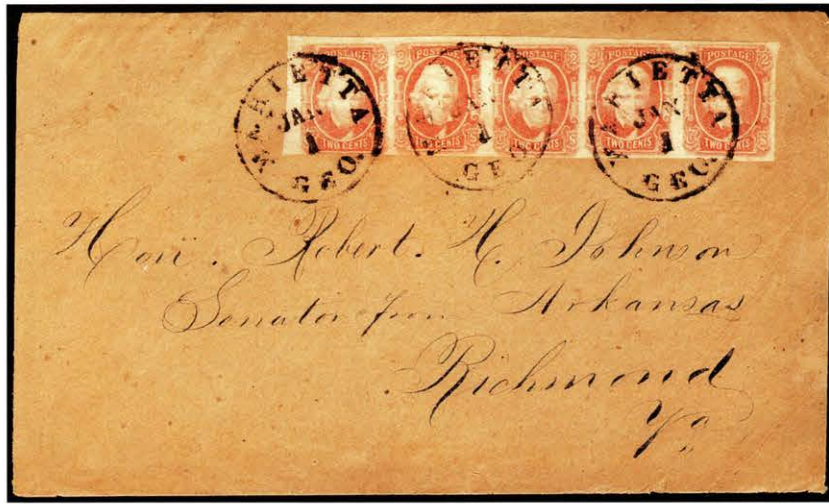 POSTAGE POSTAGE POSTAGE POSTAGE
TWO CENTS TWO CENTS TWO CENTS TWO CENTS TWO CENTS
MARIETTA
JAN
1
GEO.
MARIETTA
JAN
1
GEO.
MARIETTA
JAN
1
GEO.
Hon. Robert. H. Johnson
Senator from Arkansas
Richmond
Va